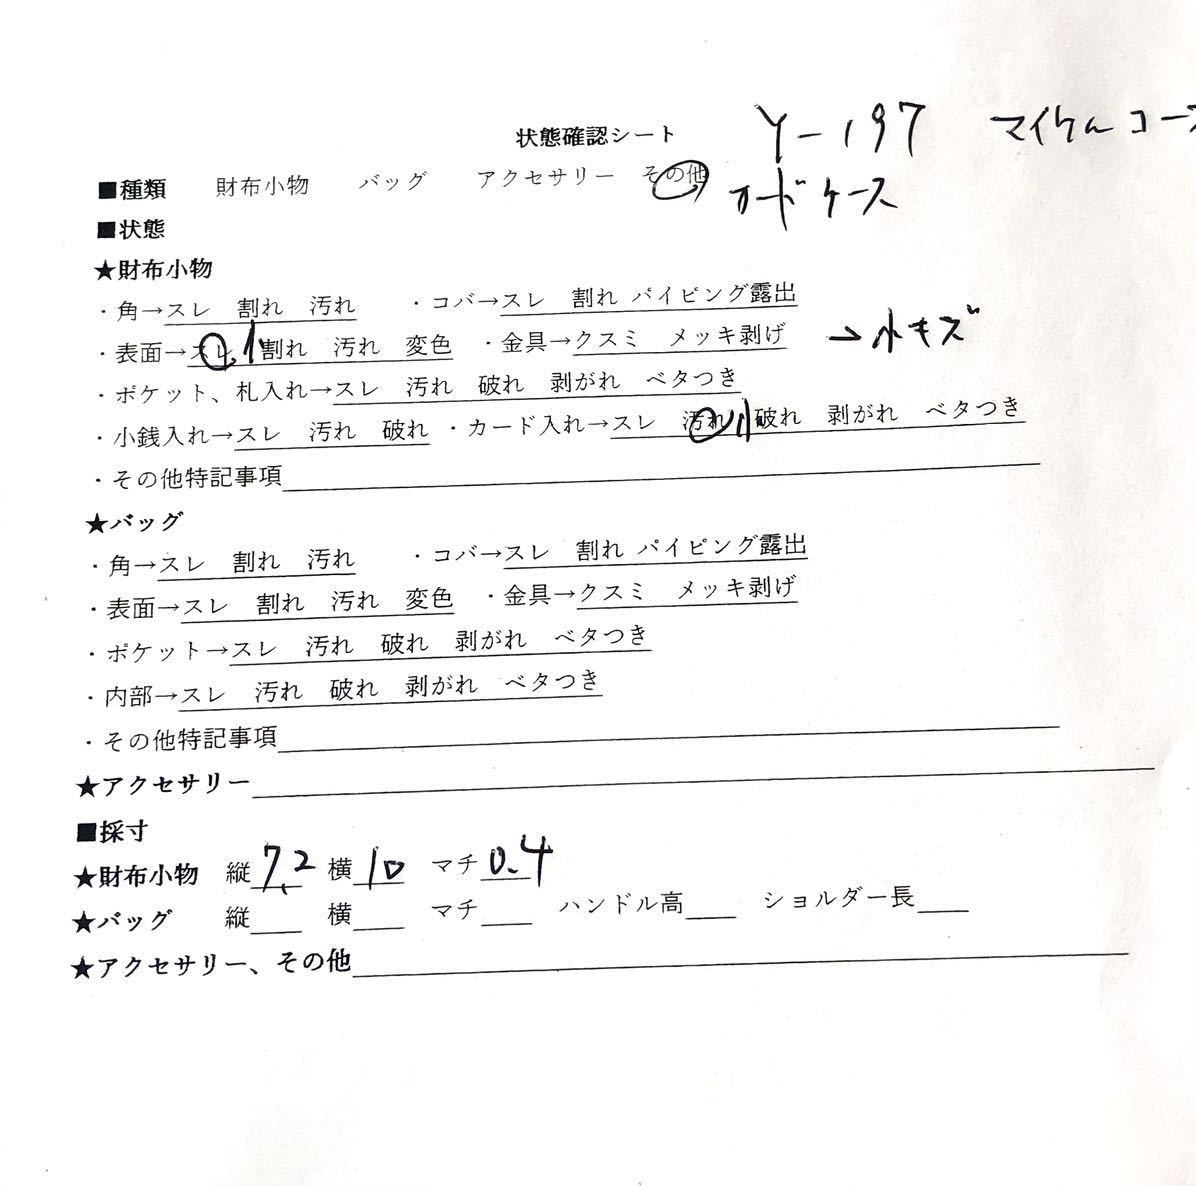 状態確認シート Y-197 マイケル コース
■種類 財布小物 バッグ アクセサリー その他 カードケース
■状態
★財布小物
・角→スレ 割れ 汚れ ・コバ→スレ 割れ パイピング露出
・表面→スレ 小 割れ 汚れ 変色 ・金具→クスミ メッキ剥げ →小キズ
・ポケット、札入れ→スレ 汚れ 破れ 剥がれ ベタつき
・小銭入れ→スレ 汚れ 破れ ・カード入れ→スレ 汚れ 小 破れ 剥がれ ベタつき
・その他特記事項
★バッグ
・角→スレ 割れ 汚れ ・コバ→スレ 割れ パイピング露出
・表面→スレ 割れ 汚れ 変色 ・金具→クスミ メッキ剥げ
・ポケット→スレ 汚れ 破れ 剥がれ ベタつき
・内部→スレ 汚れ 破れ 剥がれ ベタつき
・その他特記事項
★アクセサリー
■採寸
★財布小物 縦 7.2 横 10 マチ 0.4
★バッグ 縦 横 マチ ハンドル高 ショルダー長
★アクセサリー、その他